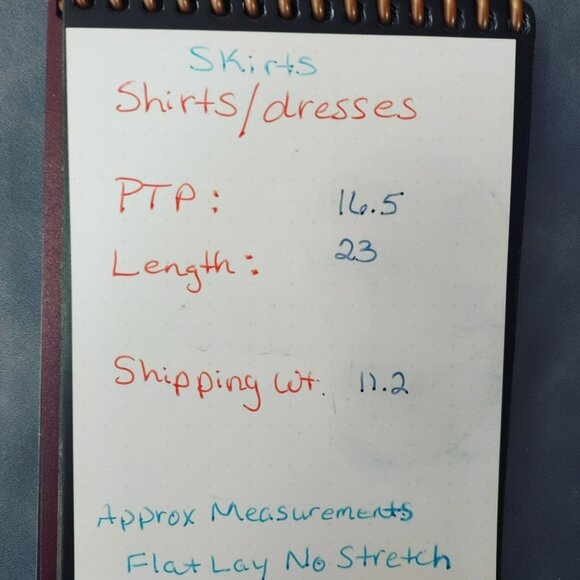 Skirts
Shirts/dresses
PTP: 16.5
Length: 23
Shipping wt. 11.2
Approx Measurements
Flat Lay No Stretch